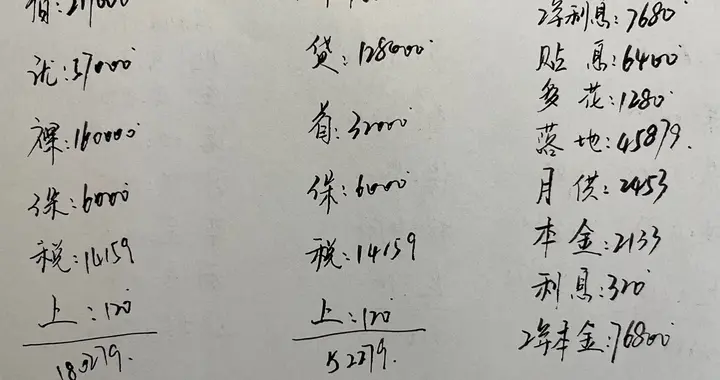 优:57000
裸:160000
保:6000
税:14159
上:120
180279.
贷:128000
首:32000
保:6000
税:14159
上:120
52279.
2年利息:7680
贴息:6400
多花:1280
落地:45879.
月供:2453
本金:2133
利息:320
2年本金:76800